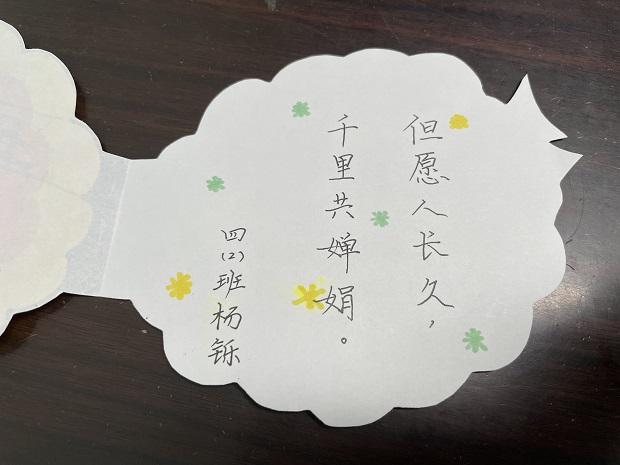 但愿人长久，
千里共婵娟。
四(2)班杨铄